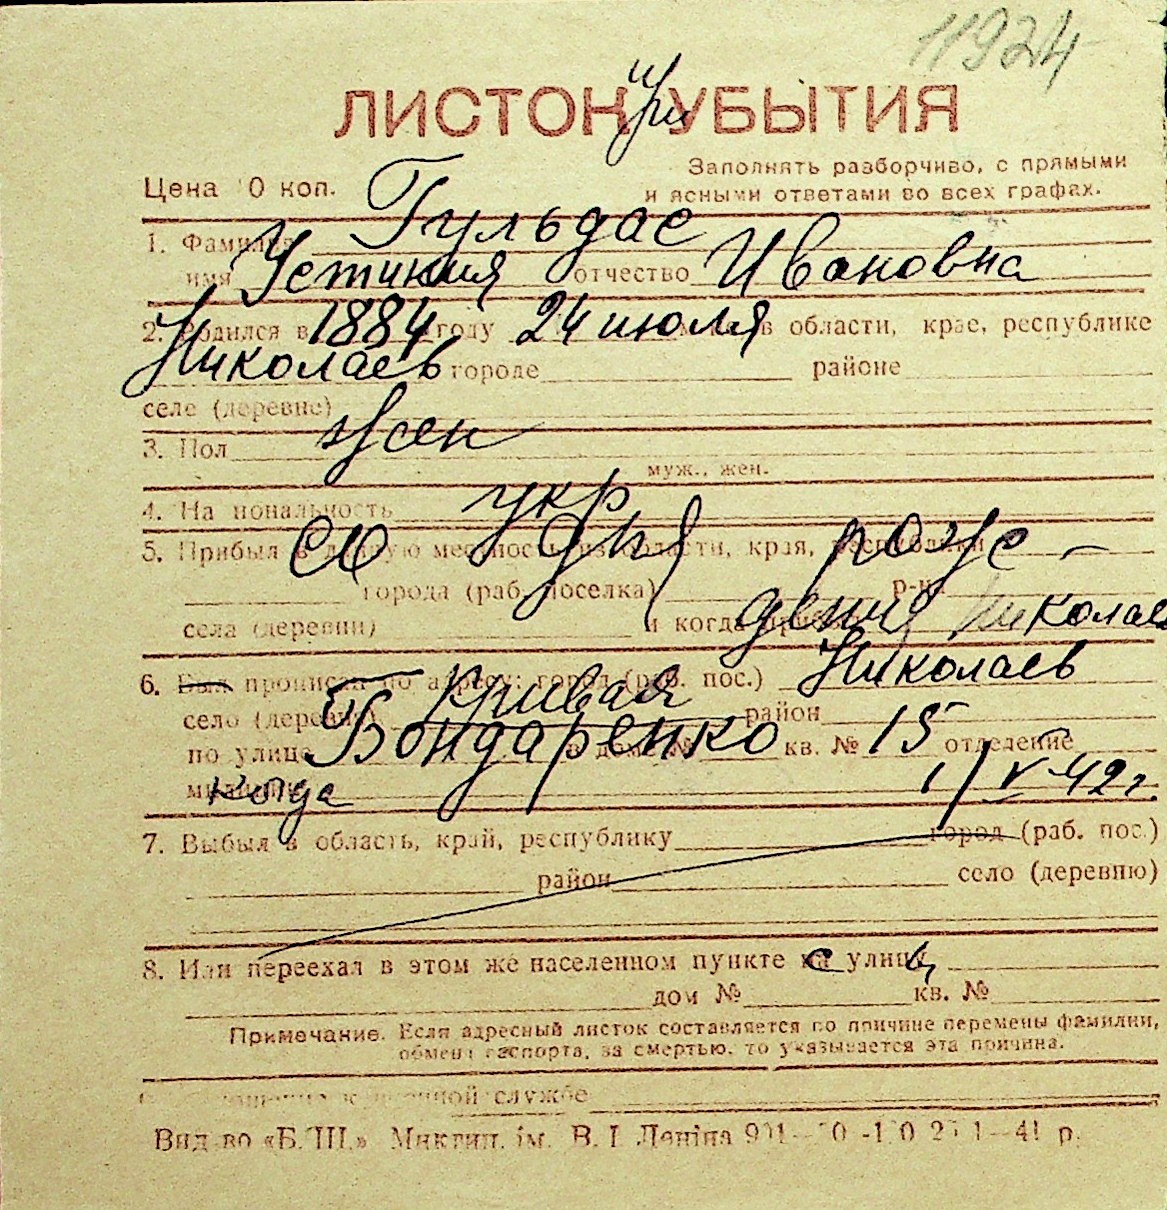 11924
ЛИСТОК при УБЫТИЯ
Заполнять разборчиво, с прямыми
и ясными ответами во всех графах.
Цена 0 коп.
1. Фамилия Гульдас
имя Устиния отчество Ивановна
2. Родился в 1884 году 24 июля в области, крае, республике
Николаев городе районе
селе (деревне)
3. Пол жен
муж., жен.
4. На иональность укр
5. Прибыл в данную местность из области, края, республики со дня рож-
города (раб. поселка) р-на
села (деревни) и когда дения Николаев
6. Был прописан по адресу: город (раб. пос.) Николаев
село (деревня) Кривая район
по улице Бондаренко дом № кв. № 15 отделение
когда 1/V-42 г.
7. Выбыл в область, край, республику город (раб. пос.)
район село (деревню)
8. Или переехал в этом же населенном пункте с улиц
дом № кв. №
Примечание. Если адресный листок составляется по причине перемены фамилии,
обмена паспорта, за смертью, то указывается эта причина.
военной службе
Вид-во «Б.Ш.» Микгип. ім. В. І. Леніна